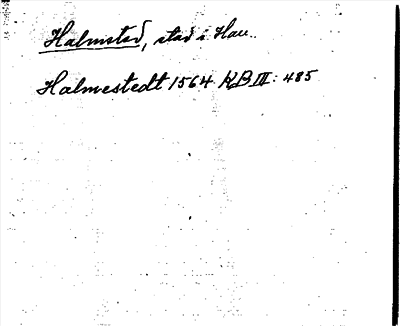 Halmstad, stad i Hall.
Halmestedt 1564 KB III: 485